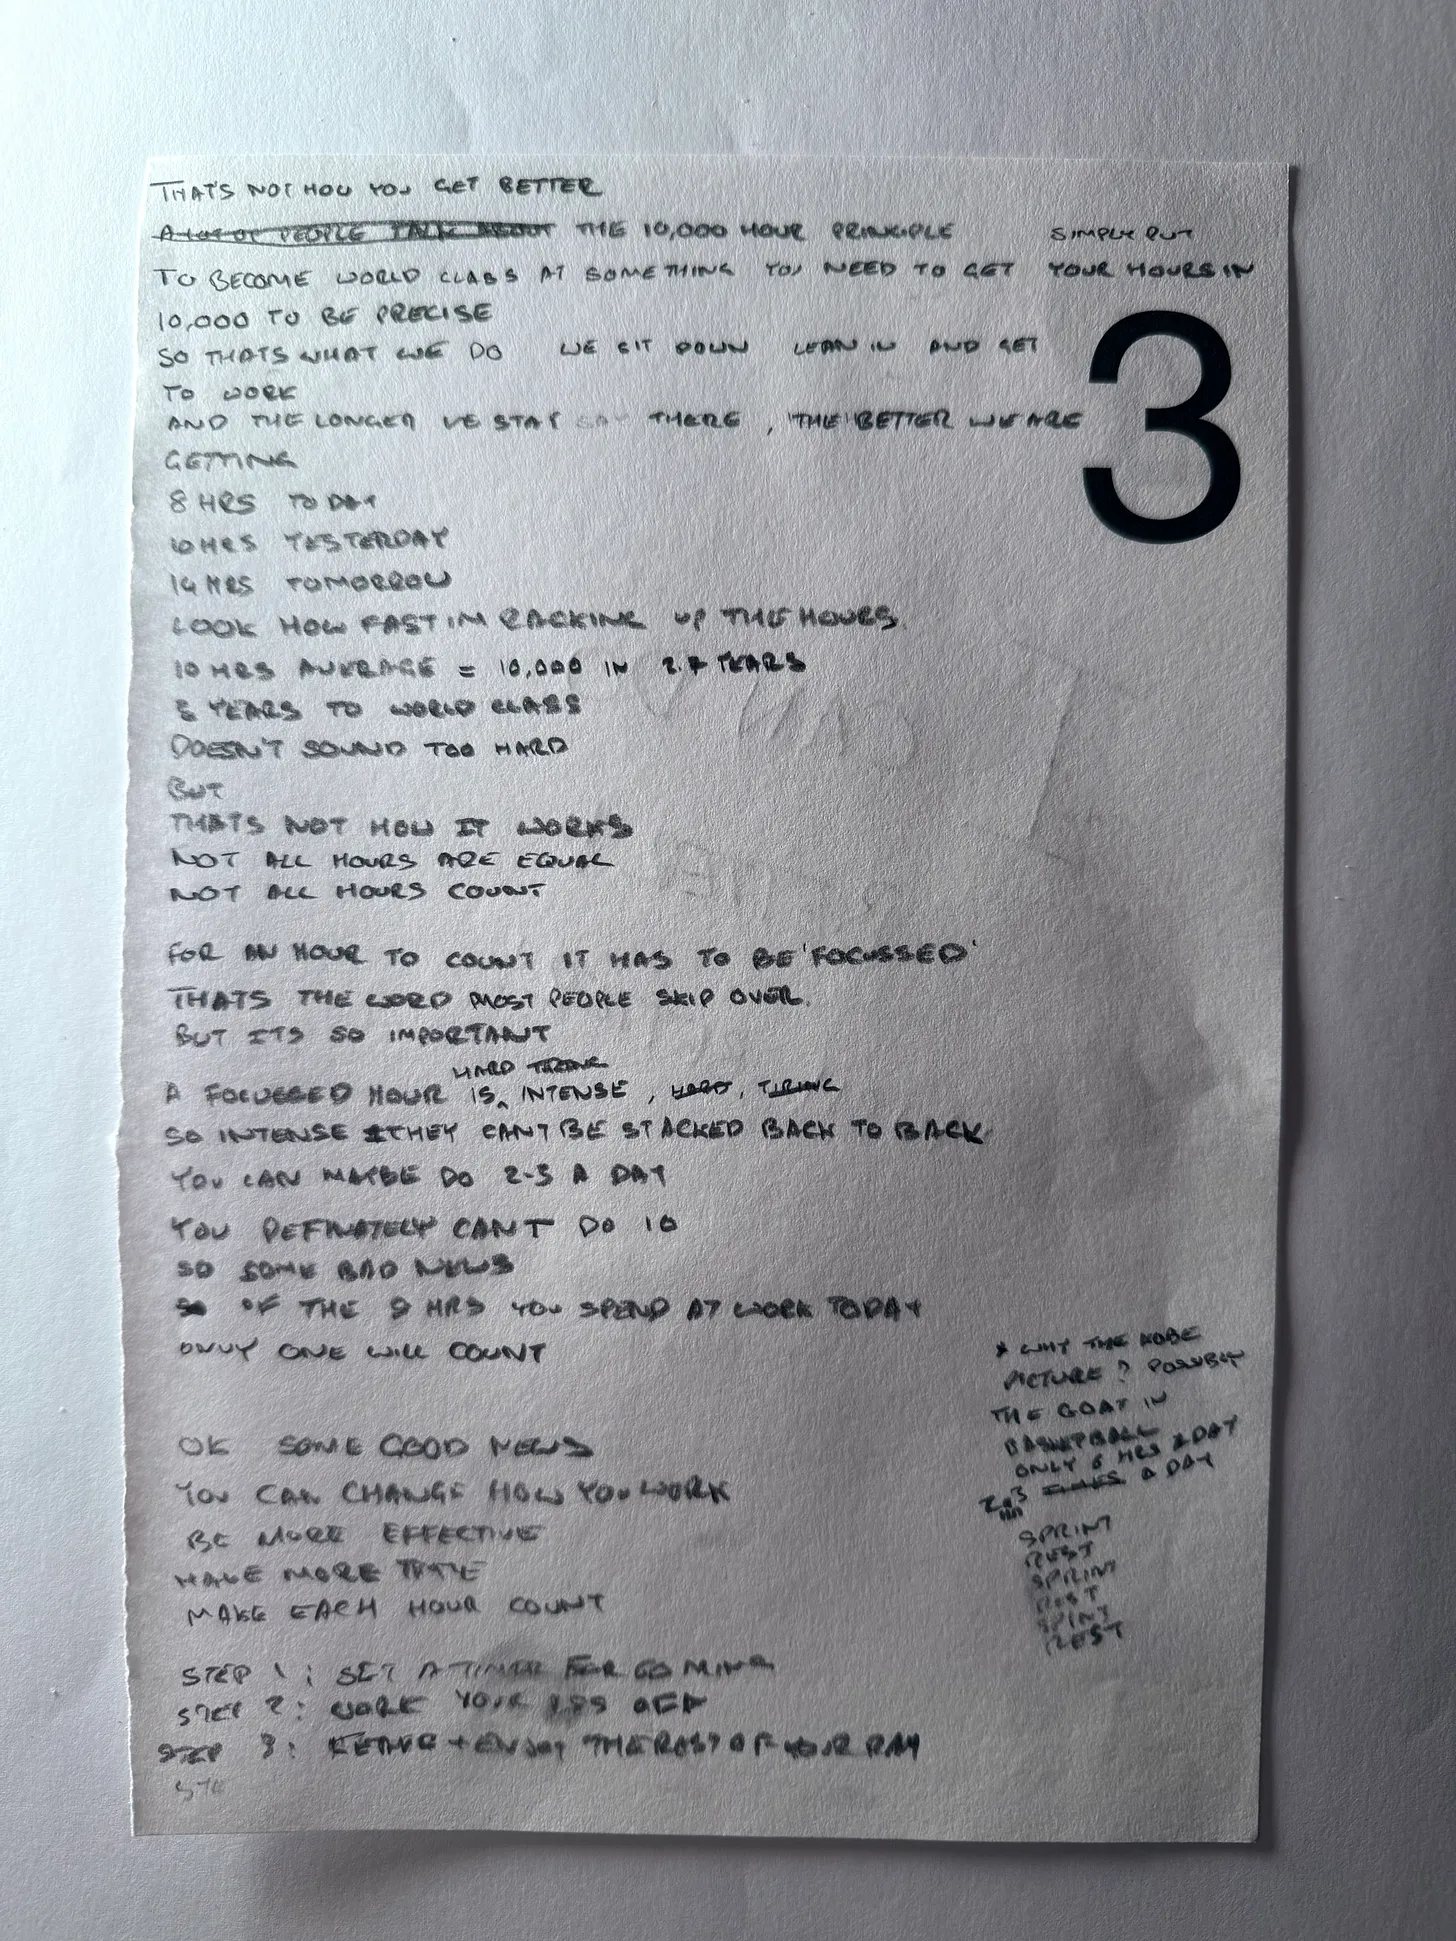 THAT'S NOT HOW YOU GET BETTER
A LOT OF PEOPLE TALK ABOUT THE 10,000 HOUR PRINCIPLE SIMPLY PUT
TO BECOME WORLD CLASS AT SOMETHING YOU NEED TO GET YOUR HOURS IN
10,000 TO BE PRECISE
3
SO THATS WHAT WE DO WE SIT DOWN LEAN IN AND GET
TO WORK
AND THE LONGER WE STAY THERE, THE BETTER WE ARE
GETTING
8 HRS TODAY
10 HRS YESTERDAY
14 HRS TOMORROW
LOOK HOW FAST IM RACKING UP THE HOURS.
10 HRS AVERAGE = 10,000 IN 2.7 YEARS
3 YEARS TO WORLD CLASS
DOESN'T SOUND TOO HARD
BUT
THATS NOT HOW IT WORKS
NOT ALL HOURS ARE EQUAL
NOT ALL HOURS COUNT
FOR AN HOUR TO COUNT IT HAS TO BE 'FOCUSSED'
THATS THE WORD MOST PEOPLE SKIP OVER.
BUT ITS SO IMPORTANT
HARD TIRING
A FOCUSSED HOUR IS, INTENSE, HARD, TIRING
SO INTENSE THEY CANT BE STACKED BACK TO BACK
YOU CAN MAYBE DO 2-3 A DAY
YOU DEFINATELY CAN'T DO 10
SO SOME BAD NEWS
SO OF THE 8 HRS YOU SPEND AT WORK TODAY
ONLY ONE WILL COUNT
* WHY THE KOBE
PICTURE? POSSIBLY
THE GOAT IN
BASKETBALL
ONLY 6 HRS A DAY
2-3 A DAY
SPRINT
REST
SPRINT
REST
SPINT
REST
OK SOME GOOD NEWS
YOU CAN CHANGE HOW YOU WORK
BE MORE EFFECTIVE
HAVE MORE TIME
MAKE EACH HOUR COUNT
STEP 1: SET A TIMER FOR 60 MINS
STEP 2: WORK YOUR ASS OFF
STEP 3: + ENJOY THE REST OF YOUR DAY
STE